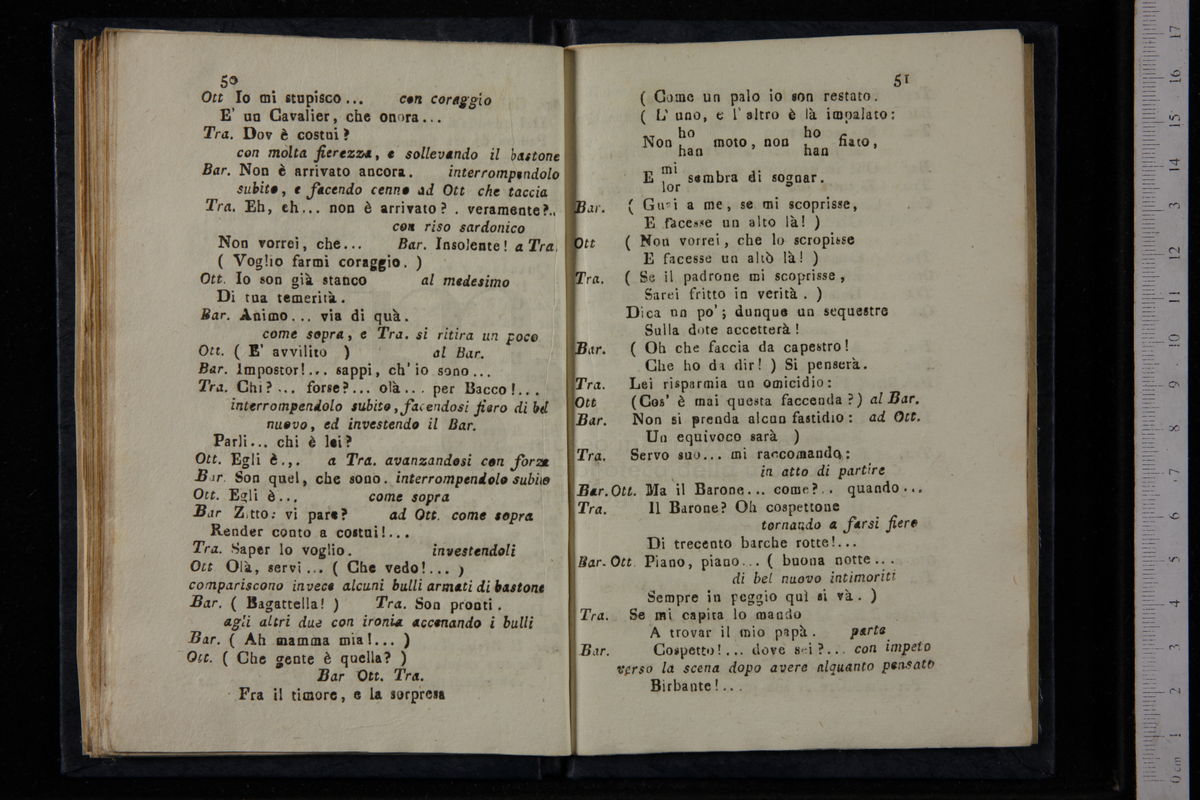 50
Ott Io mi stupisco... con coraggio
E' un Cavalier, che onora...
Tra. Dov è costui?
con molta fierezza, e sollevando il bastone
Bar. Non è arrivato ancora. interrompendolo
subito, e facendo cenno ad Ott che taccia
Tra. Eh, eh... non è arrivato? . veramente?..
con riso sardonico
Non vorrei, che... Bar. Insolente! a Tra.
( Voglio farmi coraggio. )
Ott. Io son già stanco al medesimo
Di tua temerità.
Bar. Animo... via di quà.
come sopra, e Tra. si ritira un poco
Ott. ( E' avvilito ) al Bar.
Bar. Impostor!... sappi, ch' io sono...
Tra. Chi?... forse?... olà... per Bacco!...
interrompendolo subito, facendosi fiero di bel
nuovo, ed investendo il Bar.
Parli... chi è lei?
Ott. Egli è.,. a Tra. avanzandosi con forza
Bar. Son quel, che sono. interrompendolo subito
Ott. Egli è... come sopra
Bar Zitto: vi pare? ad Ott. come sopra
Render conto a costui!...
Tra. Saper lo voglio. investendoli
Ott Olà, servi... ( Che vedo!... )
compariscono invece alcuni bulli armati di bastone
Bar. ( Bagattella! ) Tra. Son pronti.
agli altri due con ironia accenando i bulli
Bar. ( Ah mamma mia!... )
Ott. ( Che gente è quella? )
Bar Ott. Tra.
Fra il timore, e la sorpresa
51
( Come un palo io son restato.
( L' uno, e l' altro è là impalato:
Non ho moto, non ho fiato,
han han
E mi sembra di sognar.
lor
Bar. ( Guai a me, se mi scoprisse,
E facesse un alto là! )
Ott ( Non vorrei, che lo scropisse
E facesse un altò là! )
Tra. ( Se il padrone mi scoprisse,
Sarei fritto in verità. )
Dica un po'; dunque un sequestro
Sulla dote accetterà!
Bar. ( Oh che faccia da capestro!
Che ho da dir! ) Si penserà.
Tra. Lei risparmia un omicidio:
Ott (Cos' è mai questa faccenda?) al Bar.
Bar. Non si prenda alcun fastidio: ad Ott.
Un equivoco sarà )
Tra. Servo suo... mi raccomando:
in atto di partire
Bar. Ott. Ma il Barone... come?.. quando...
Tra. Il Barone? Oh cospettone
tornando a farsi fiero
Di trecento barche rotte!...
Bar. Ott. Piano, piano... ( buona notte...
di bel nuovo intimoriti
Sempre in peggio quì si và. )
Tra. Se mi capita lo mando
A trovar il mio papà. parte
Bar. Cospetto!... dove sei?... con impeto
verso la scena dopo avere alquanto pensato
Birbante!...
0 cm 1 2 3 4 5 6 7 8 9 10 11 12 13 14 15 16 17